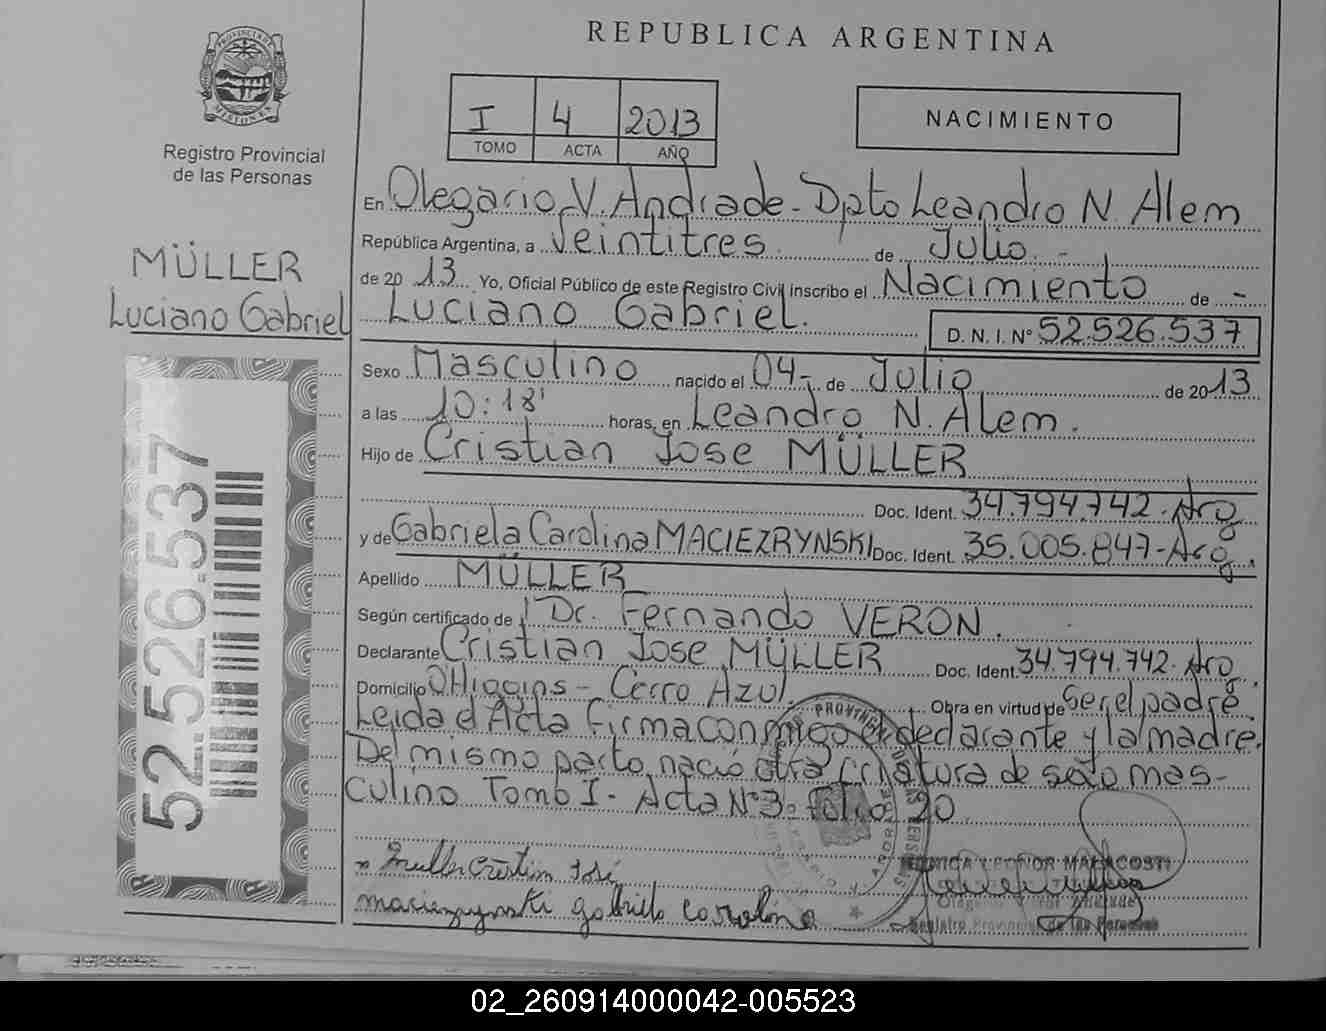 REPUBLICA ARGENTINA
PROVINCIA DE
MISIONES
Registro Provincial
de las Personas
I 4 2013
TOMO ACTA AÑO
NACIMIENTO
MÜLLER
Luciano Gabriel
52.526.537
En Olegario V. Andrade - Dpto Leandro N. Alem
República Argentina, a Veintitres de Julio. -
de 20 13 Yo, Oficial Público de este Registro Civil inscribo el Nacimiento de -
Luciano Gabriel.
D. N. I. Nº 52.526.537
Sexo Masculino nacido el 04 - de Julio de 2013
a las 10:18' horas, en Leandro N. Alem.
Hijo de Cristian Jose MÜLLER
Doc. Ident. 34.794.742. Arg
y de Gabriela Carolina MACIEZRYNSKI Doc. Ident. 35.005.847-Arg.
Apellido MÜLLER
Según certificado de Dr. Fernando VERON.
Declarante Cristian Jose MÜLLER Doc. Ident. 34.794.742. Arg
Domicilio O'Higgins - Cerro Azul. Obra en virtud de ser el padre.
Leida el Acta firma conmigo el declarante y la madre.
Del mismo parto nació otra criatura de sexo mas-
culino Tomo I - Acta Nº 3 - folio 20
Muller Cristian José
Maciezrynski gabriela carolina
LEONOR MALACOSTI
Registro Provincial de las Personas
02_260914000042-005523